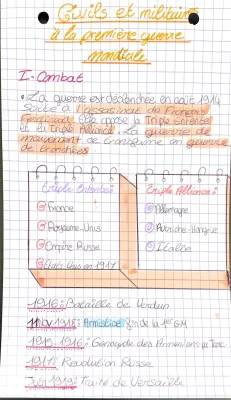 Civils et militaires
à la première guerre
mondiale
I. Combat
La guerre est déclenchée en août 1914
suite à l'assassinat de François
Ferdinand. Elle oppose la Triple Entente
et la Triple Alliance. La guerre de
mouvement se transforme en guerre
de tranchées
Triple Entente:
France
Royaume-Unis
Empire Russe
États-Unis en 1917
Triple Alliance:
Allemagne
Autriche-Hongrie
Italie
1916: Bataille de Verdun
11 Nov 1918: Armistice fin de la 1er GM
1915-1916: Génocide des Arméniens
1917: Revolution Russe
Juin 1919: Traité de Versaille